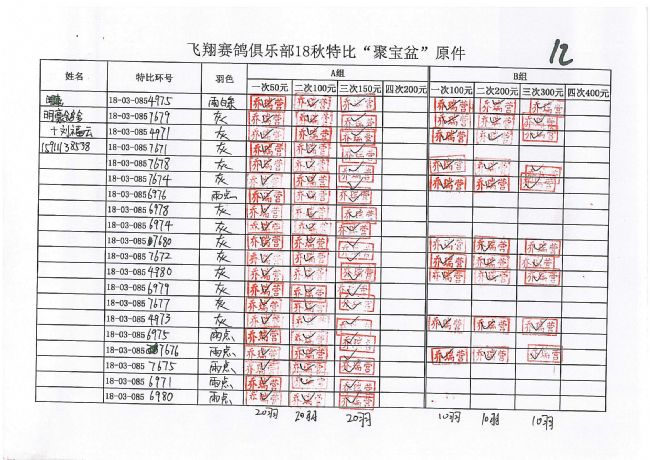 飞翔赛鸽俱乐部18秋特比“聚宝盆”原件 12
姓名 特比环号 羽色 A组 B组
一次50元 二次100元 三次150元 四次200元 一次100元 二次200元 三次300元 四次400元
18-03-0854975 雨白条 乔瑞营 乔瑞营 乔瑞营 乔瑞营 乔瑞营 乔瑞营
18-03-0857679 灰 乔瑞营 乔瑞营 乔瑞营 乔瑞营 乔瑞营 乔瑞营
十刘福云 18-03-0854971 灰 乔瑞营 乔瑞营 乔瑞营 乔瑞营 乔瑞营 乔瑞营
18-03-0857671 灰 乔瑞营 乔瑞营 乔瑞营
18-03-0857678 灰 乔瑞营 乔瑞营 乔瑞营 乔瑞营 乔瑞营 乔瑞营
18-03-0857674 灰 乔瑞营 乔瑞营 乔瑞营 乔瑞营 乔瑞营 乔瑞营
18-03-0856976 雨点 乔瑞营 乔瑞营 乔瑞营
18-03-0856978 灰 乔瑞营 乔瑞营 乔瑞营
18-03-0856974 灰 乔瑞营 乔瑞营 乔瑞营
18-03-0857680 灰 乔瑞营 乔瑞营 乔瑞营 乔瑞营 乔瑞营 乔瑞营
18-03-0857672 灰 乔瑞营 乔瑞营 乔瑞营 乔瑞营 乔瑞营 乔瑞营
18-03-0854980 灰 乔瑞营 乔瑞营 乔瑞营 乔瑞营 乔瑞营 乔瑞营
18-03-0856979 灰 乔瑞营 乔瑞营 乔瑞营
18-03-0857677 灰 乔瑞营 乔瑞营 乔瑞营
18-03-0854973 灰 乔瑞营 乔瑞营 乔瑞营 乔瑞营 乔瑞营 乔瑞营
18-03-0856975 雨点 乔瑞营 乔瑞营 乔瑞营
18-03-0857676 雨点 乔瑞营 乔瑞营 乔瑞营 乔瑞营 乔瑞营 乔瑞营
18-03-0857675 雨点 乔瑞营 乔瑞营 乔瑞营
18-03-0856971 雨点 乔瑞营 乔瑞营 乔瑞营
18-03-0856980 雨点 乔瑞营 乔瑞营 乔瑞营
20羽 20羽 20羽 10羽 10羽 10羽